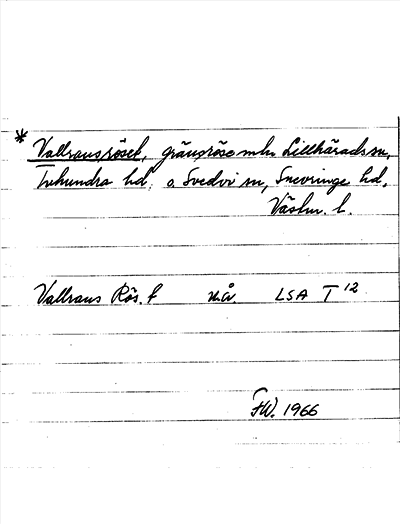 * Vallransröset, gränsröse mln Lillhärads sn,
Tuhundra hd. o. Svedvi sn, Snevringe hd,
Västm. l.
Vallrans Rös. t u.å. LSA T 12
FW. 1966